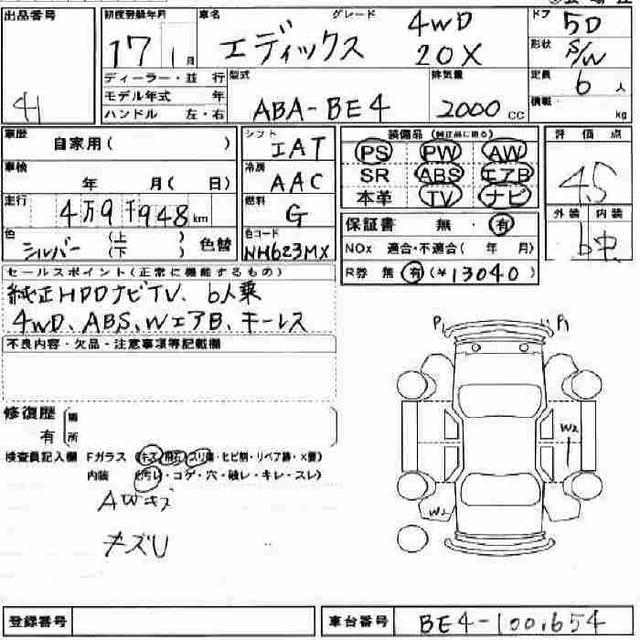 出品番号 41
初度登録年月 17 1月
車名 エディックス
グレード 4WD 20X
ドア 5D
形状 S/W
定員 6人
積載 kg
ディーラー・並行
モデル年式 年
ハンドル 左・右
型式 ABA-BE4
排気量 2000cc
車歴 自家用( )
車検 年 月( 日)
走行 4万9千948km
色 シルバー (上下) 色替
シフト IAT
冷房 AAC
燃料 G
色コード NH623MX
装備品 (純正品に限る)
PS PW AW
SR ABS エアB
本革 TV ナビ
保証書 無・有
NOx 適合・不適合( 年 月)
R券 無 有 (¥13040)
評価点 4.5
外装 内装
セールスポイント(正常に機能するもの)
純正HDDナビTV、6人乗
4WD、ABS、WエアB、キーレス
不良内容・欠品・注意事項等記載欄
修復歴
有 箇所
検査員記入欄 Fガラス (キズ・飛石・スリ傷・ヒビ割・リペア跡・X要)
内装 (汚レ・コゲ・穴・破レ・キレ・スレ)
AWキズ
キズU
P1 P1
W2
W2
登録番号
車台番号 BE4-1001654